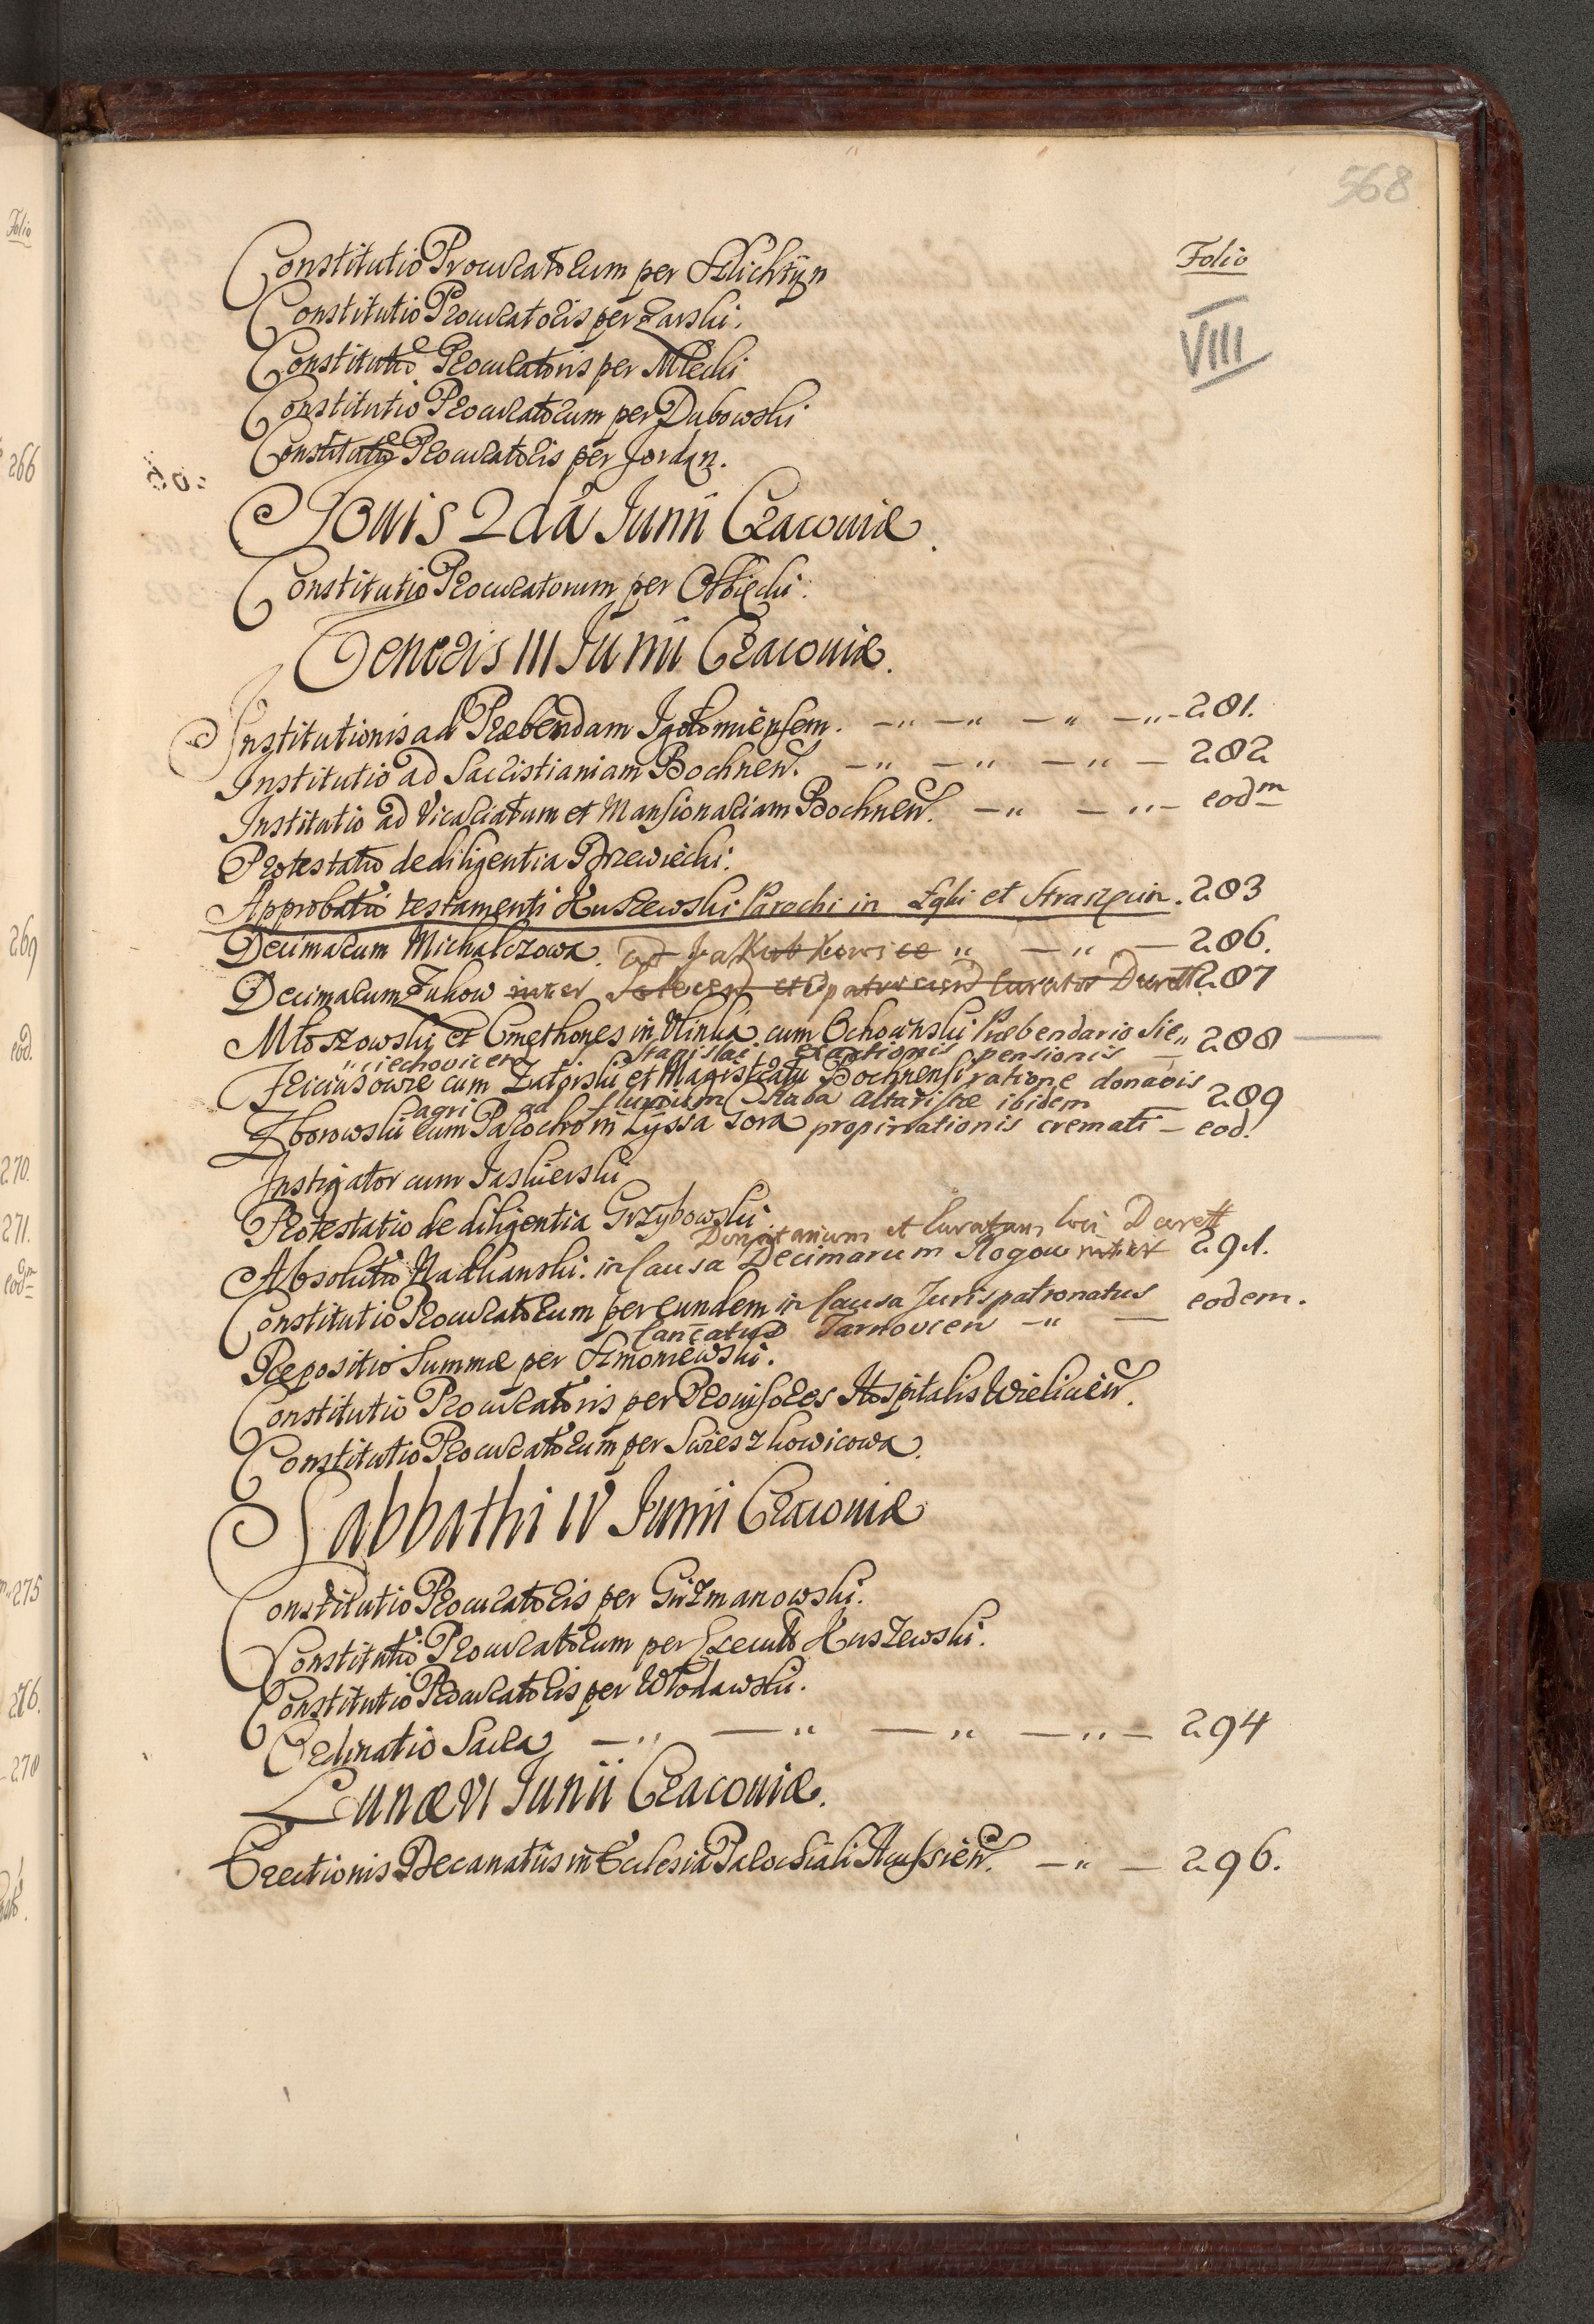 568
Folio
VIII
Constitutio Procuratorum per Szlichtÿn
Constitutio Procuratoris per Zarski.
Constitutio Procuratoris per Młecki
Constitutio Procuratorum per Dubowski
Constitutio Procuratoris per Jordan.
Jouis 2da Junii Cracouiæ.
Constitutio Procuratorum per
Veneris III Junii Cracouiæ.
Institutionis ad Præbendam Igołomiensem. 281.
Institutio ad Sacristianiam Bochnen. 282
Institutio ad Vicariatum et Mansionariam Bochnen. eodm
Protestatio de diligentia Brzewiecki.
Approbatio testamenti Kuszewski Parochi in et 283
Decimarum Michalczowa. ad Jakubkowice 286.
Decimarum Żukow inter et Curator Decrett 287
Młoszowski et Cmethones in Vlinka cum Ochowński Præbendario Sie„ 288
„ciechovicen S. Stanislai exactionis pensionis
cum Zatorski et Magistratu Bochnensi ratione donaois
agri ad fluvium Raba Altaristæ ibidem 289
Zborowski cum Parocho in Lyssa Gora propinationis cremati eod.
Instigator cum Jaskierski
Protestatio de diligentia Grzybowski
Donatarium et Curatum loci Decrett
Absolutio Nadkanski. in Causa Decimarum Rogow inter 291.
Constitutio Procuratorum per eundem in Causa Jurispatronatus eodem.
Cancatus Tarnovien
Repositio Summæ per Szmoniewski.
Constitutio Procuratoris per Prouisores Hospitalis Wielicien.
Constitutio Procuratorum per Swieszkowicowa.
Sabbathi IV Junii Cracouiæ
Constitutio Procuratoris per Girzmanowski.
Constitutio Procuratorum per Execut Kuszewski.
Constitutio Procuratoris per Włodawski.
Ordinatio Sacra 294
Lunæ VI Junii Cracouiæ.
Erectionis Decanatus in Ecclesia Parochiali 296.
266
269
eod.
270.
271.
eodm
275
276.
278